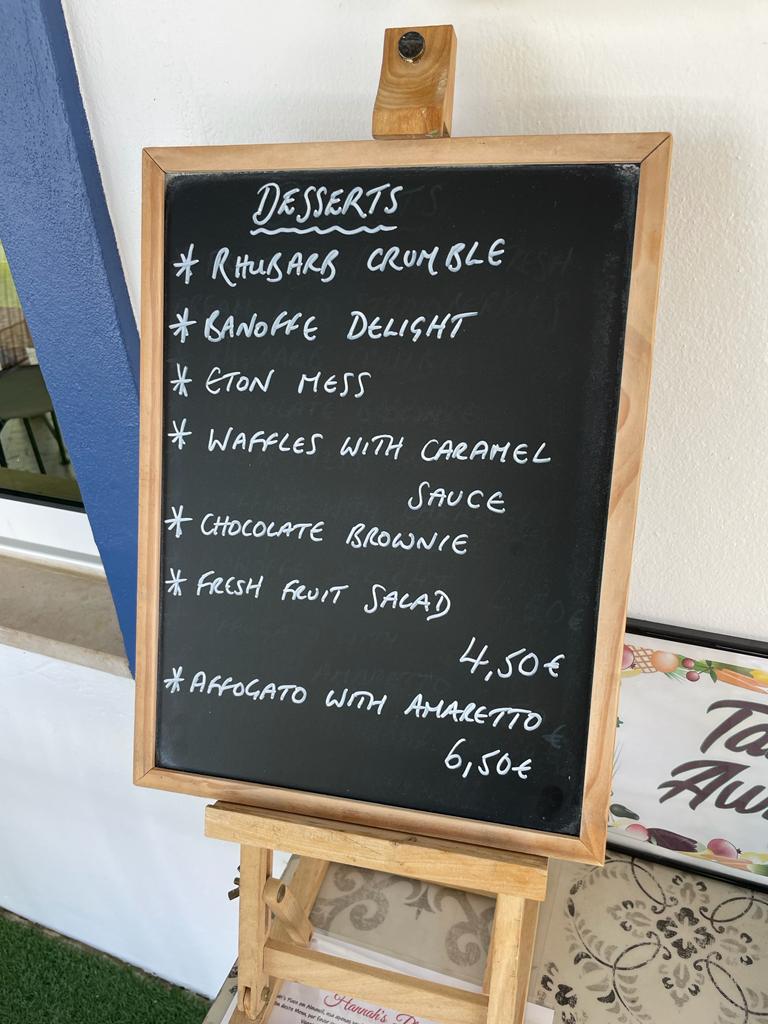 DESSERTS
* RHUBARB CRUMBLE
* BANOFFE DELIGHT
* ETON MESS
* WAFFLES WITH CARAMEL
SAUCE
* CHOCOLATE BROWNIE
* FRESH FRUIT SALAD
4,50€
* AFFOGATO WITH AMARETTO
6,50€
Hannah's